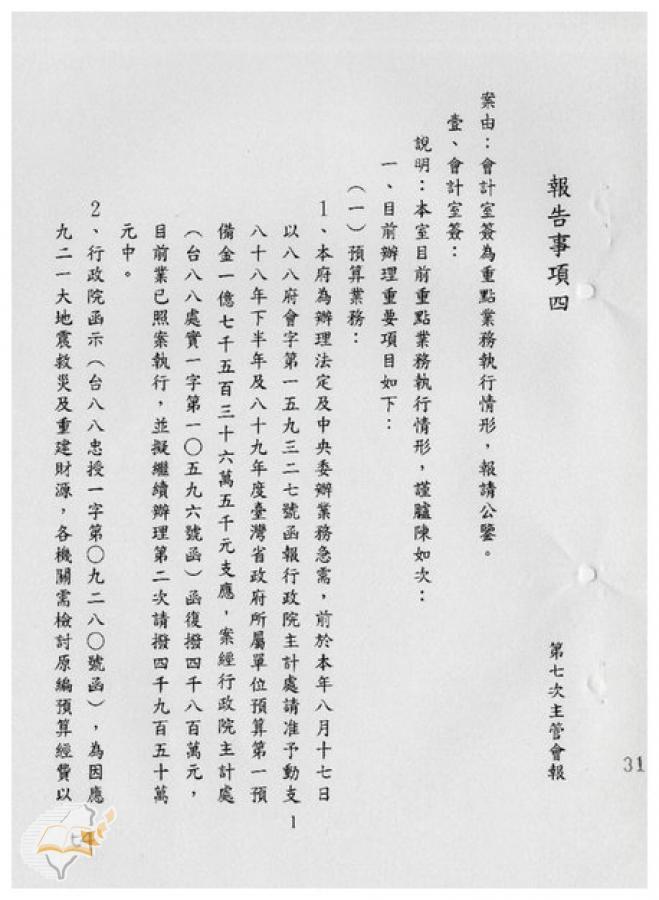 報告事項四
第七次主管會報
案由：會計室簽為重點業務執行情形，報請公鑒。
壹、會計室簽：
說明：本室目前重點業務執行情形，謹臚陳如次：
一、目前辦理重要項目如下：
（一）預算業務：
1、本府為辦理法定及中央委辦業務急需，前於本年八月十七日
以八八府會字第一五九三二七號函報行政院主計處請准予動支
八十八年下半年及八十九年度臺灣省政府所屬單位預算第一預
備金一億七千五百三十六萬五千元支應，案經行政院主計處
（台八八處實一字第一〇五九六號函）函復撥四千八百萬元，
目前業已照案執行，並擬繼續辦理第二次請撥四千九百五十萬
元中。
2、行政院函示（台八八忠授一字第〇九二八〇號函），為因應
九二一大地震救災及重建財源，各機關需檢討原編預算經費以
1
31